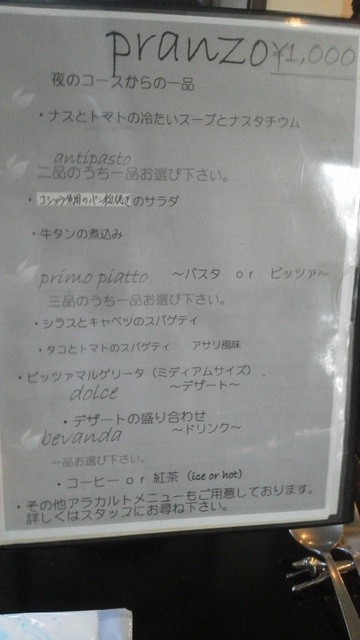 pranzo ¥1,000
夜のコースからの一品
・ナスとトマトの冷たいスープとナスタチウム
antipasto
二品のうち一品お選び下さい。
・コショウ鯛のパン粉焼きのサラダ
・牛タンの煮込み
primo piatto ～パスタ or ピッツァ～
三品のうち一品お選び下さい。
・シラスとキャベツのスパゲティ
・タコとトマトのスパゲティ アサリ風味
・ピッツァマルゲリータ（ミディアムサイズ）
dolce ～デザート～
・デザートの盛り合わせ
bevanda ～ドリンク～
一品お選び下さい。
・コーヒー or 紅茶（ice or hot)
・その他アラカルトメニューもご用意しております。
詳しくはスタッフにお尋ね下さい。